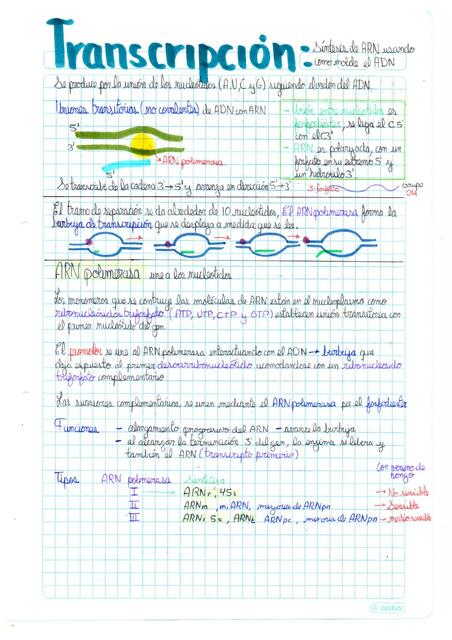 Transcripción:
Síntesis de ARN usando
como molde el ADN
Se produce por la unión de los nucleótidos (A, U, C y G) siguiendo el orden del ADN.
Uniones transitorias (no covalentes) de ADN con ARN
5'
3'
5'
ARN polimerasa
- Unión entre nucleótidos es
fosfodiéster, se liga el C5'
con el C3'
- ARN es polarizada, con un
fosfato en su extremo 5' y
un hidroxilo 3'
Se transcribe de la cadena 3'→5' y avanza en dirección 5'→3'
grupo
OH
El tramo de separación se da alrededor de 10 nucleótidos, El ARN polimerasa forma la
burbuja de transcripción que se desplaza a medida que se lee.
ARN polimerasa une a los nucleótidos
Los monomeros que se contruye las moléculas de ARN están en el nucleoplasma como
ribonucleósidos trifosfato (ATP, UTP, CTP y GTP) establecen unión transitoria con
el primer nucleótido del gen.
El promotor se une al ARN polimerasa interactuando con el ADN → burbuja que
deja expuesto al primer desoxirribonucleótido acomodandose con un ribonucleósido
trifosfato complementario
Las sucesiones complementarias se unen mediante el ARN polimerasa por el fosfodiester
Funciones - alargamiento progresivo del ARN - avance la burbuja
- al alcanzar la terminación 3' del gen, la enzima se libera y
también el ARN (transcripto primario)
Tipos ARN polimerasa Sintetiza
Con veneno de
hongo
I ARNr, 45s → No sensible
II ARNm, mARN, mayoria de ARNpn → Sensible
III ARNr 5s, ARNt ARNpc, minoria de ARNpn → medio sensible
Justus